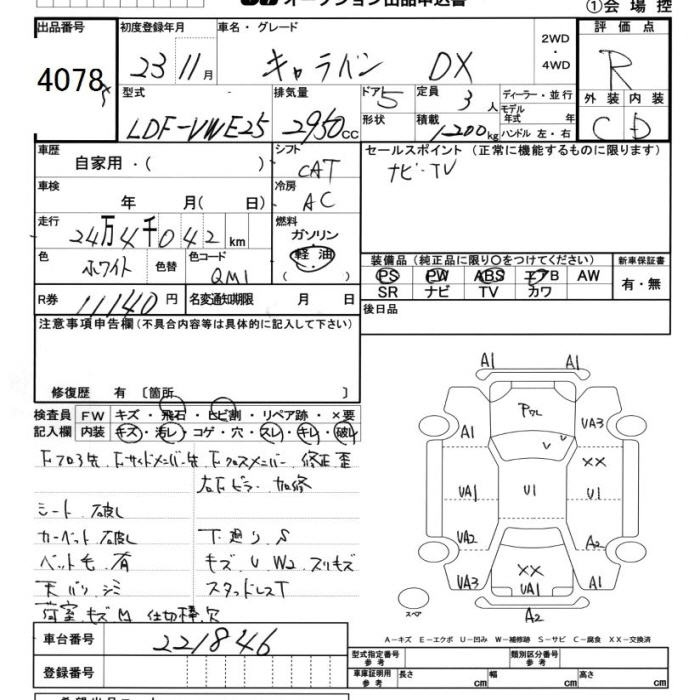 オークション出品申込書
①会場控
出品番号 初度登録年月 車名・グレード 2WD・4WD 評価点
4078 23 11月 キャラバン DX R
型式 排気量 ドア 5 定員 3人 ディーラー・並行
モデル年式 年
外装 内装
LDF-VWE25 2950cc 形状 積載 1200kg ハンドル 左・右 C D
車歴 自家用・( ) シフト CAT セールスポイント (正常に機能するものに限ります)
ナビ・TV
車検 年 月( 日) 冷房 AC
走行 24万4千042km 燃料 ガソリン
軽油
( )
色 ホワイト 色替 色コード QM1
装備品 (純正品に限り○をつけてください) 新車保証書
PS PW ABS エアB AW 有・無
SR ナビ TV カワ
R券 11140円 名変通知期限 月 日
後日品
注意事項申告欄(不具合内容等は具体的に記入して下さい)
修復歴 有 〔箇所 〕
検査員 FW キズ・飛石・ヒビ割・リペア跡・×要
記入欄 内装 キズ・汚レ・コゲ・穴・スレ・キレ・破レ
F.サイドメンバー先 F.クロスメンバー 修正 歪
右Fピラー 加修
シート 破レ
カーペット 破レ 下廻り S
ペット毛 有 キズ U W2 スリキズ
天バリ シミ スタッドレスT
荷室 キズ M 仕切棒 欠
A1 A1
A1 UA3
XX
V V
UA1 U1 U1
UA2 A2
XX
UA3 UA1 A1
スペア A2
A－キズ E－エクボ U－凹み W－補修跡 S－サビ C－腐食 XX－交換済
車台番号 221846
型式指定番号 参考 類別区分番号 参考
登録番号
車庫証明用 参考 長さ cm 幅 cm 高さ cm